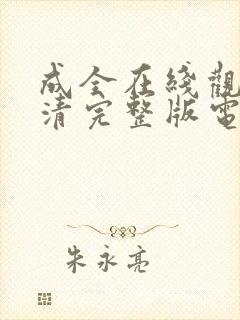 成全在綫觀
清完整版電
朱永亮